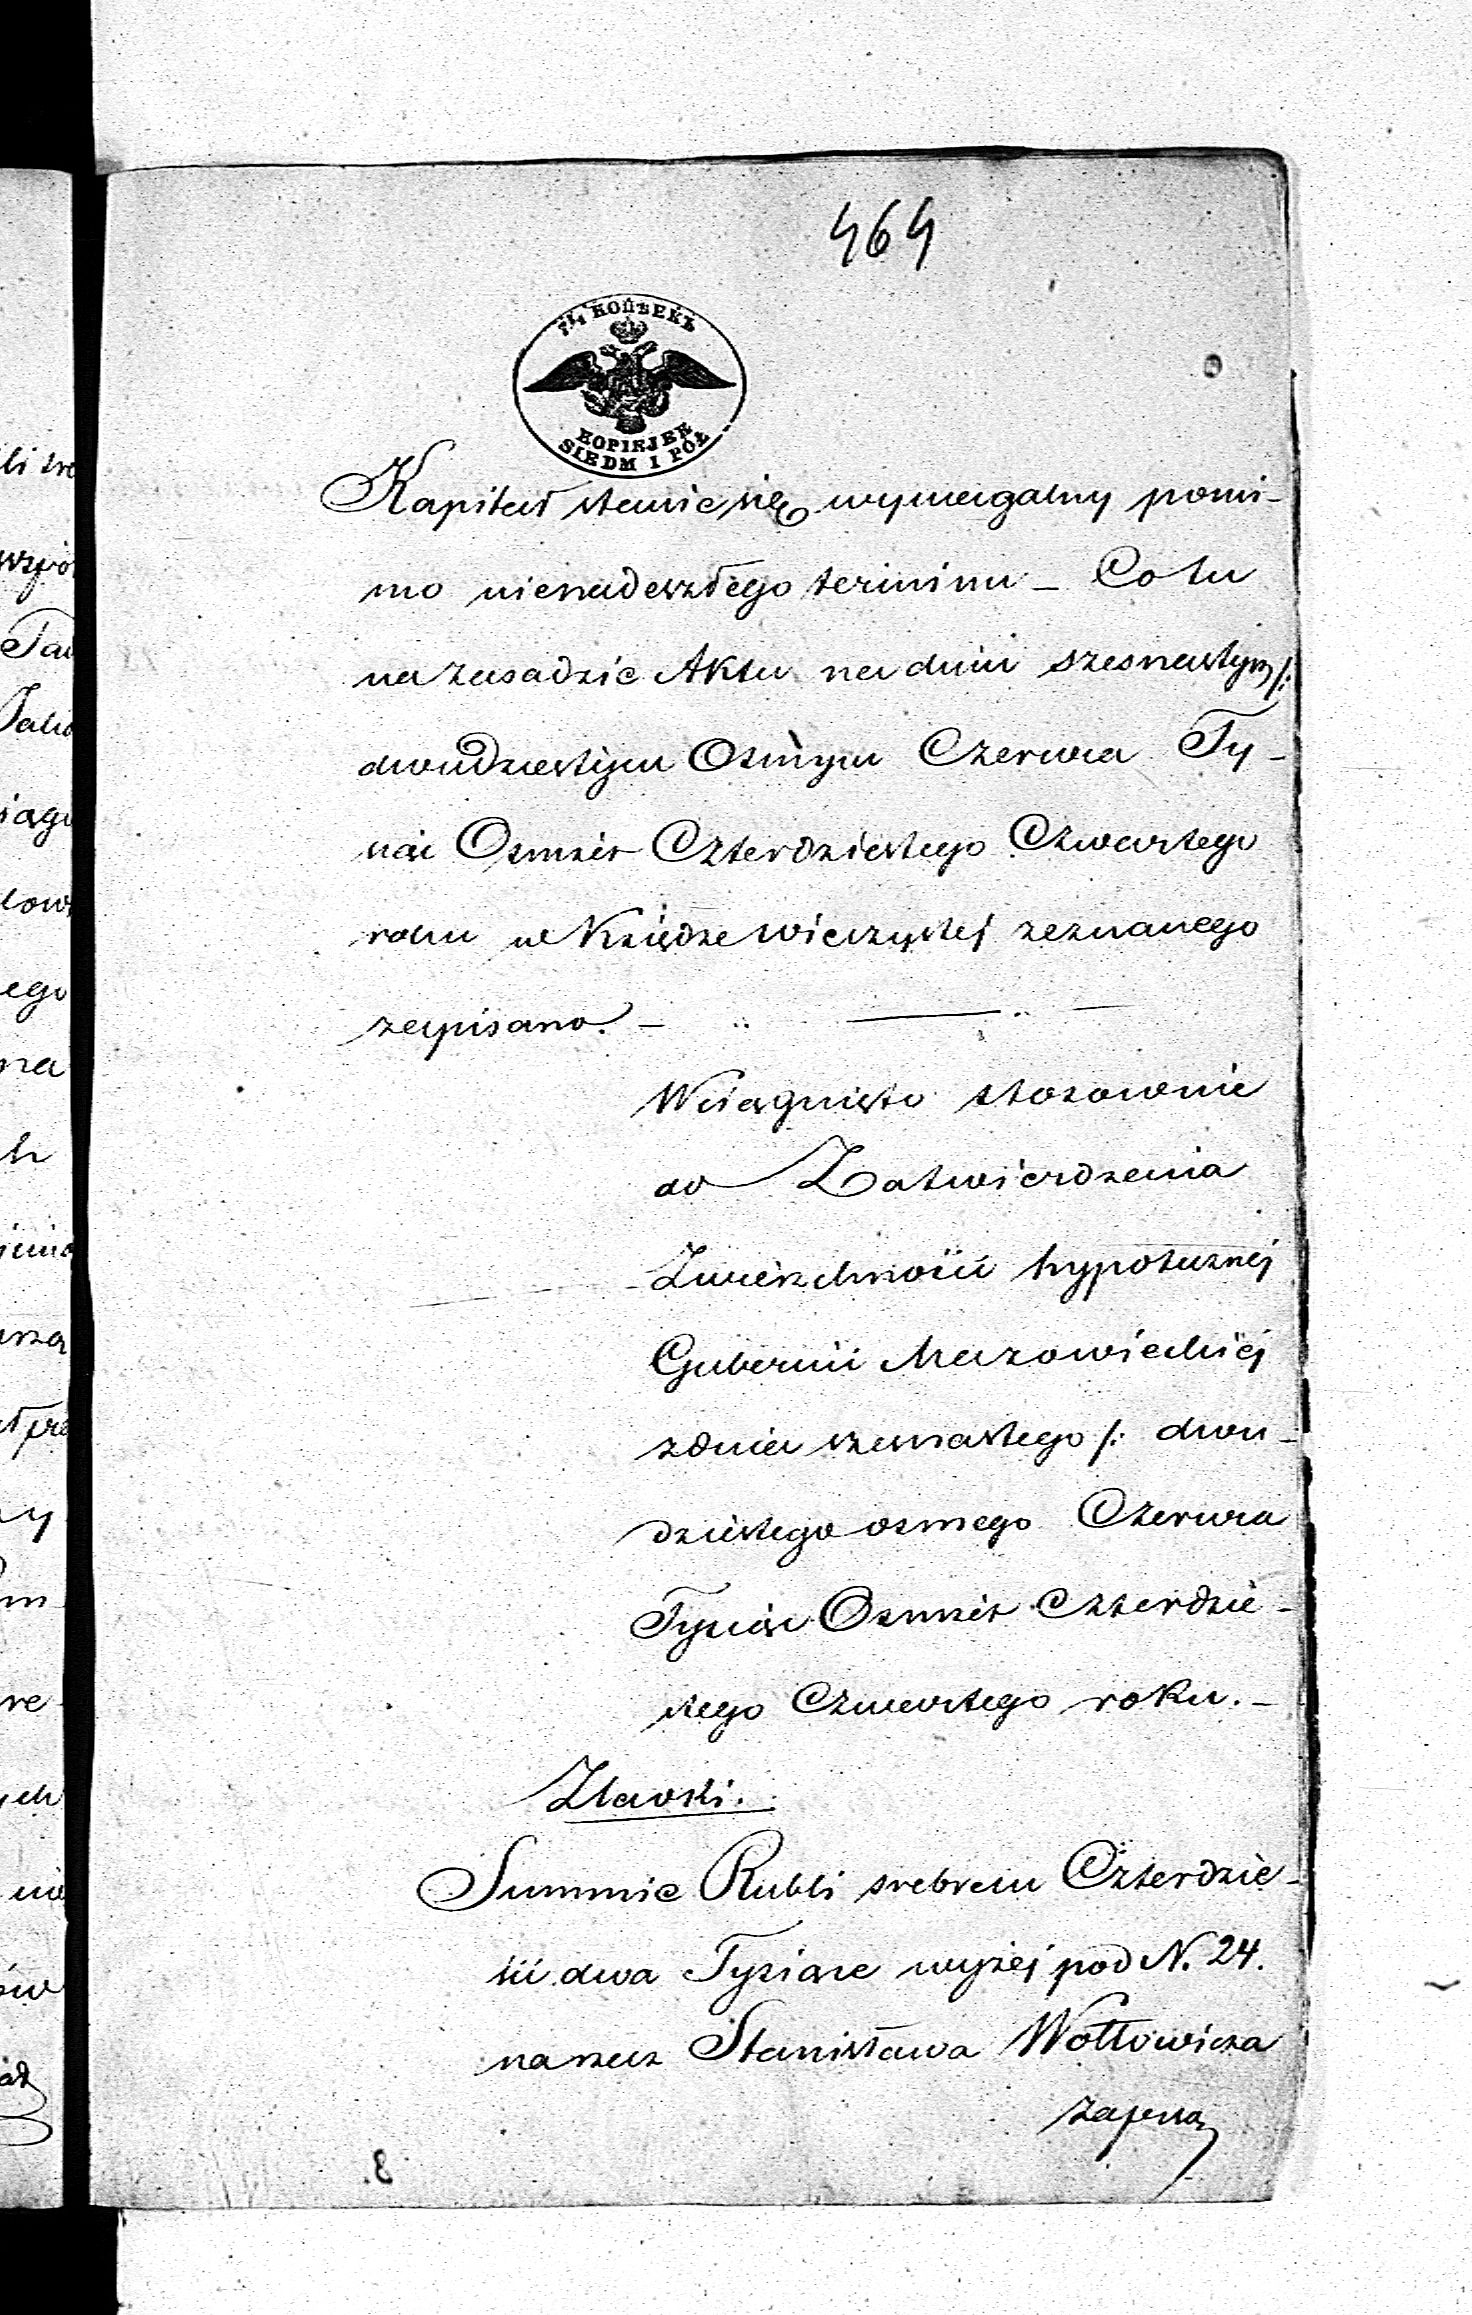 464
7½ КОПѢЕКЪ
KOPIEJEK
SIEDM I PÓŁ
Kapitał stanie się wymagalny pomi-
mo nienadeszłego terminu – Co tu
na zasadzie Aktu na dniu szesnastym /:
dwudziestym Osmym Czerwca Ty-
siąc Osmset Czterdziestego Czwartego
roku w Księdze wieczystej zeznanego
zapisano. –
Wciągnięto stosownie
do Zatwierdzenia
Zwierzchności hypotecznej
Gubernii Mazowieckiej
z dnia szesnastego /: dwu-
dziestego osmego Czerwca
Tysiąc Osmset Czterdzie-
stego Czwartego roku. –
Summie Rubli srebrem Czterdzie-
ści dwa Tysiące wyżej pod N. 24.
na rzecz Stanisława Wołłowicza
8